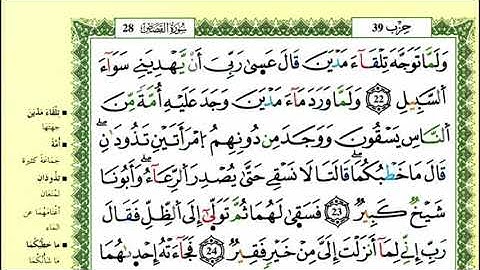 حِزْب 39
سُورَةُ القَصَصِ 28
وَلَمَّا تَوَجَّهَ تِلْقَآءَ مَدْيَنَ قَالَ عَسَىٰ رَبِّىٓ أَنْ يَّهْدِيَنِى سَوَآءَ
اَ۬لسَّبِيلِ 22 وَلَمَّا وَرَدَ مَآءَ مَدْيَنَ وَجَدَ عَلَيْهِ أُمَّةً مِّنَ
اَ۬لنَّاسِ يَسْقُونَ وَوَجَدَ مِن دُونِهِمُ اُ۪مْرَأَتَيْنِ تَذُودَانِ
قَالَ مَا خَطْبُكُمَا قَالَتَا لَا نَسْقِى حَتَّىٰ يُصْدِرَ اَ۬لرِّعَآءُ وَأَبُونَا
شَيْخٌ كَبِيرٌ 23 فَسَقَىٰ لَهُمَا ثُمَّ تَوَلَّىٰٓ إِلَى اَ۬لظِّلِّ فَقَالَ
رَبِّ إِنِّى لِمَآ أَنزَلْتَ إِلَىَّ مِنْ خَيْرٍ فَقِيرٌ 24 فَجَآءَتْهُ إِحْدَىٰهُمَا
تِلْقَاءَ مَدْيَنَ
جِهَتَهَا
أُمَّةً
جَمَاعَةً كَثِيرَةً
تَذُودَانِ
تَمْنَعَانِ
أَغْنَامَهُمَا عَنِ
المَاءِ
مَا خَطْبُكُمَا
مَا شَأْنُكُمَا